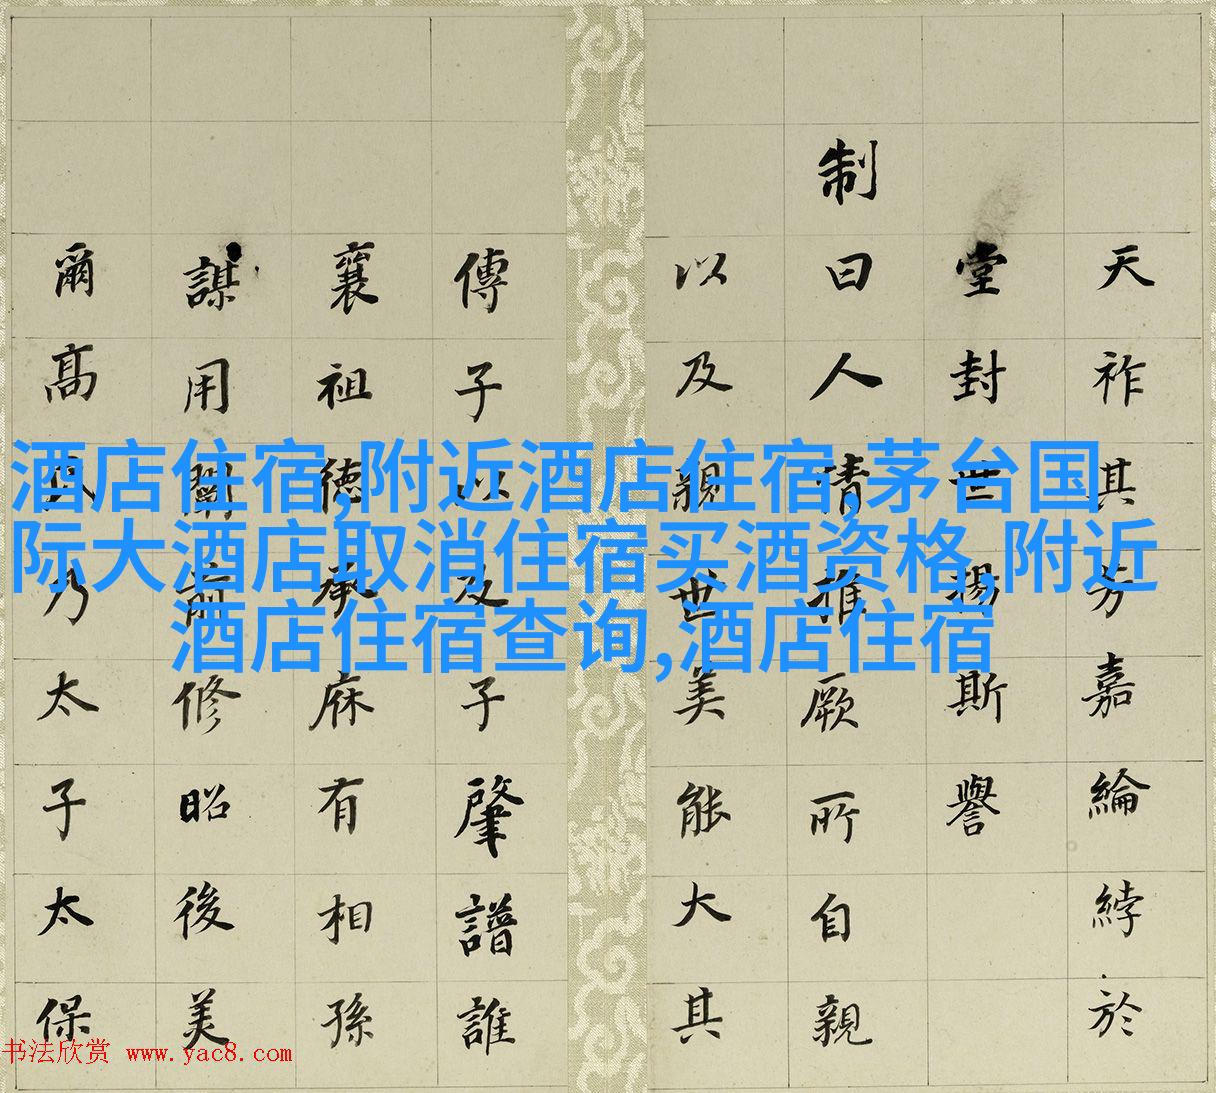 酒店住宿,附近酒店住宿,茅台国
际大酒店取消住宿买酒资格,附近
酒店住宿查询,酒店住宿
天祚其芳嘉綸綍於
堂封世揚斯譽
制曰人情推厥所自親
以及親世美能大其
傳子以及子肇譜誰
襄祖德承庥有相孫
謀用闡前修昭後美
爾高氏乃太子太保
书法欣赏 www.yac8.com